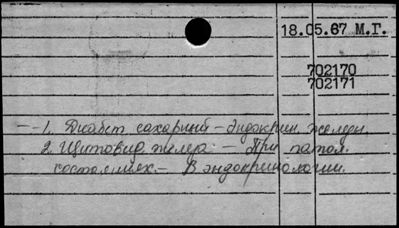 18.05.67 М.Г.
702170
702171
1. Диабет сахарный - Эндокрин. желез.
2. Щитовид. железа - При патол.
состояниях - В эндокринологии.